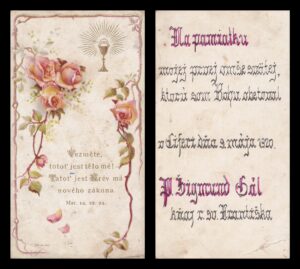 Vezměte,
totoť jest tělo mé!
Tatoť jest Krev má
nového zákona.
Mar. 14, 22. 24.
Na pamiatku
mojej prvej omše svätej,
ktorú som Bohu obetoval
v Cíferi dňa 9. mája
P. Žigmund Gál
kňaz r. sv. Františka.